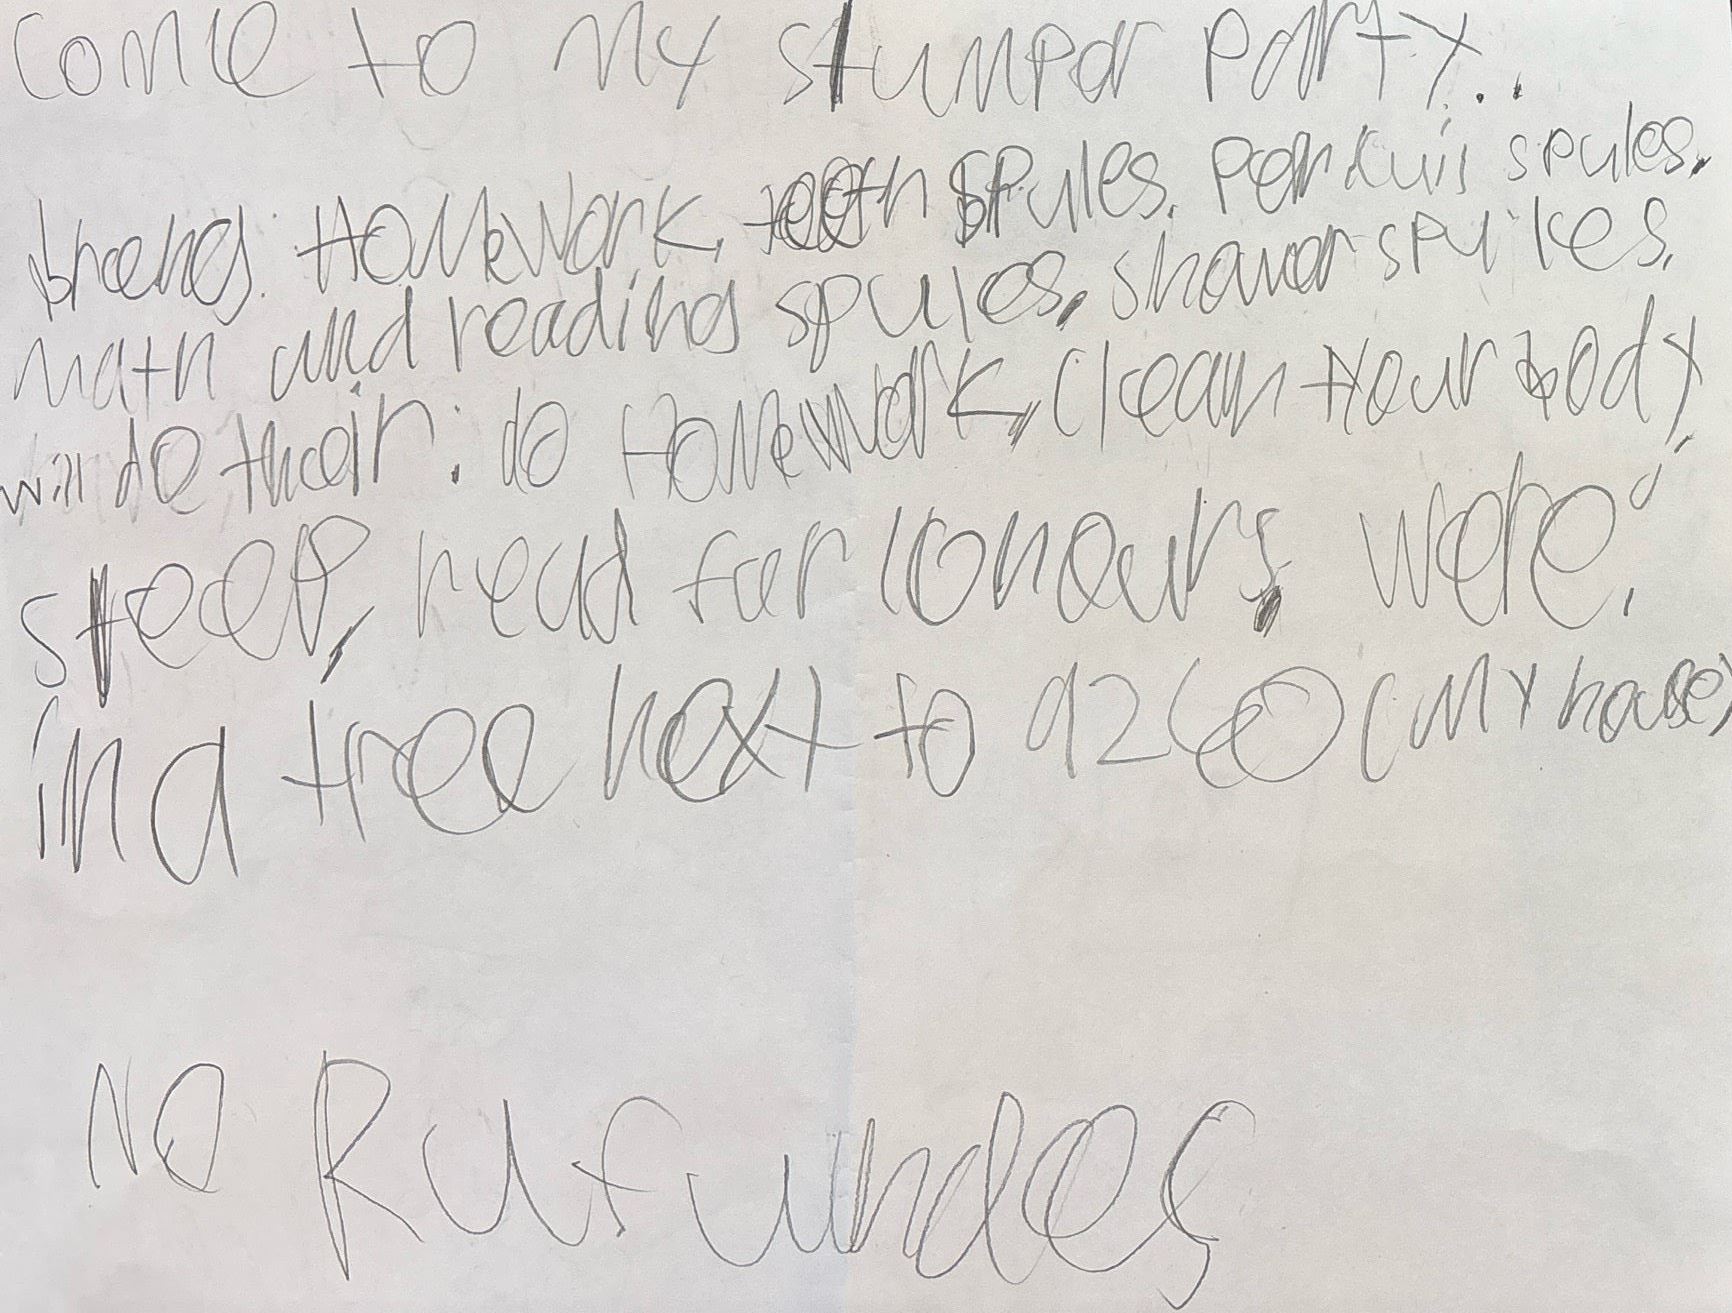 come to my stumper party..
breeng: Homework, teeth spules. Perkuis spules.
math and reading spules, shower spules.
will do their: do Homework, clean your body,
sleep, read for 10 hours, were:
in a tree next to 9260 (my house)
No Rufundes